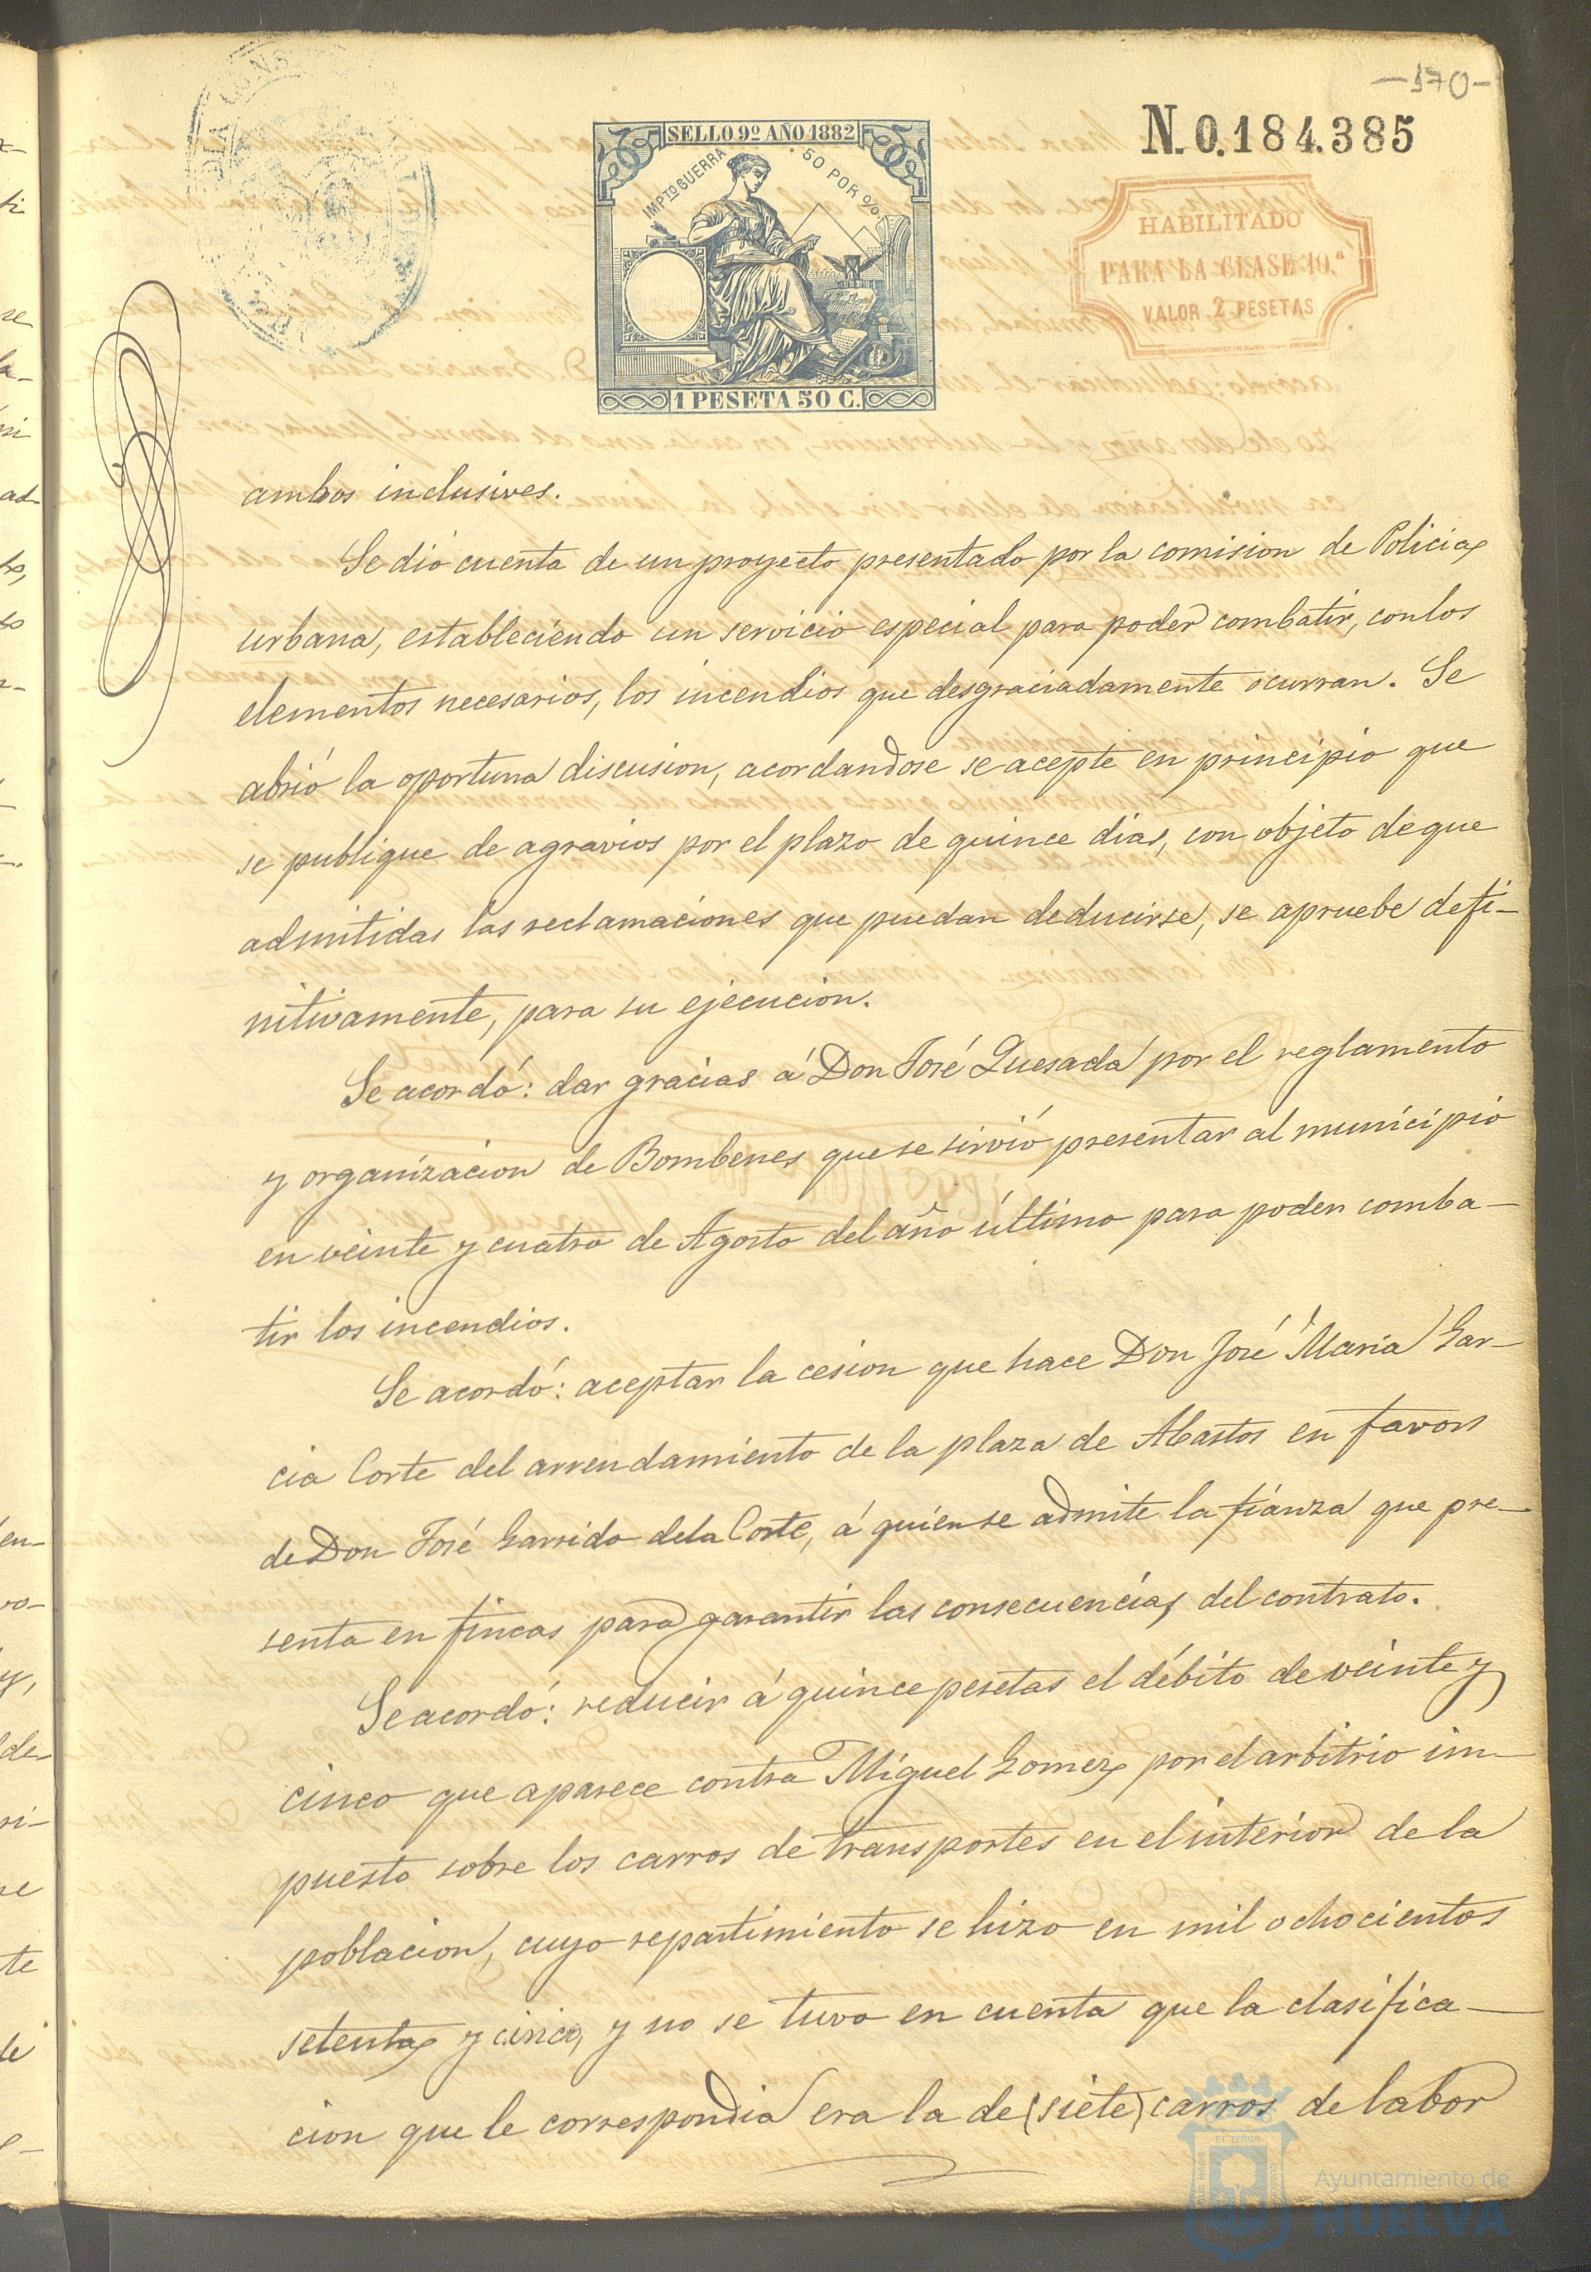 -170-
N.0.184.385
SELLO 9º AÑO 1882
IMPTO GUERRA 50 POR %
1 PESETA 50 C.
HABILITADO
PARA LA CLASE 10.ª
VALOR 2 PESETAS
ambos inclusives.
Se dió cuenta de un proyecto presentado por la comision de Policia
urbana, estableciendo un servicio especial para poder combatir, con los
elementos necesarios, los incendios que desgraciadamente ocurran. Se
abrió la oportuna discusion, acordandose se acepte en principio que
se publique de agravios por el plazo de quince dias, con objeto de que
admitidas las reclamaciones que puedan deducirse, se apruebe defi-
nitivamente, para su ejecucion.
Se acordó: dar gracias á Don José Quesada por el reglamento
y organizacion de Bomberos que se sirvió presentar al municipio
en veinte y cuatro de Agosto del año último para poder comba-
tir los incendios.
Se acordó: aceptar la cesion que hace Don José Maria Gar-
cia Corte del arrendamiento de la plaza de Abastos en favor
de Don José Garrido de la Corte, á quien se admite la fianza que pre-
senta en fincas para garantir las consecuencias del contrato.
Se acordó: reducir á quince pesetas el débito de veinte y
cinco que aparece contra Miguel Gomez por el arbitrio im-
puesto sobre los carros de transportes en el interior de la
poblacion, cuyo repartimiento se hizo en mil ochocientos
setenta y cinco, y no se tuvo en cuenta que la clasifica-
cion que le correspondia era la de (siete) carros de labor
Ayuntamiento de
HUELVA